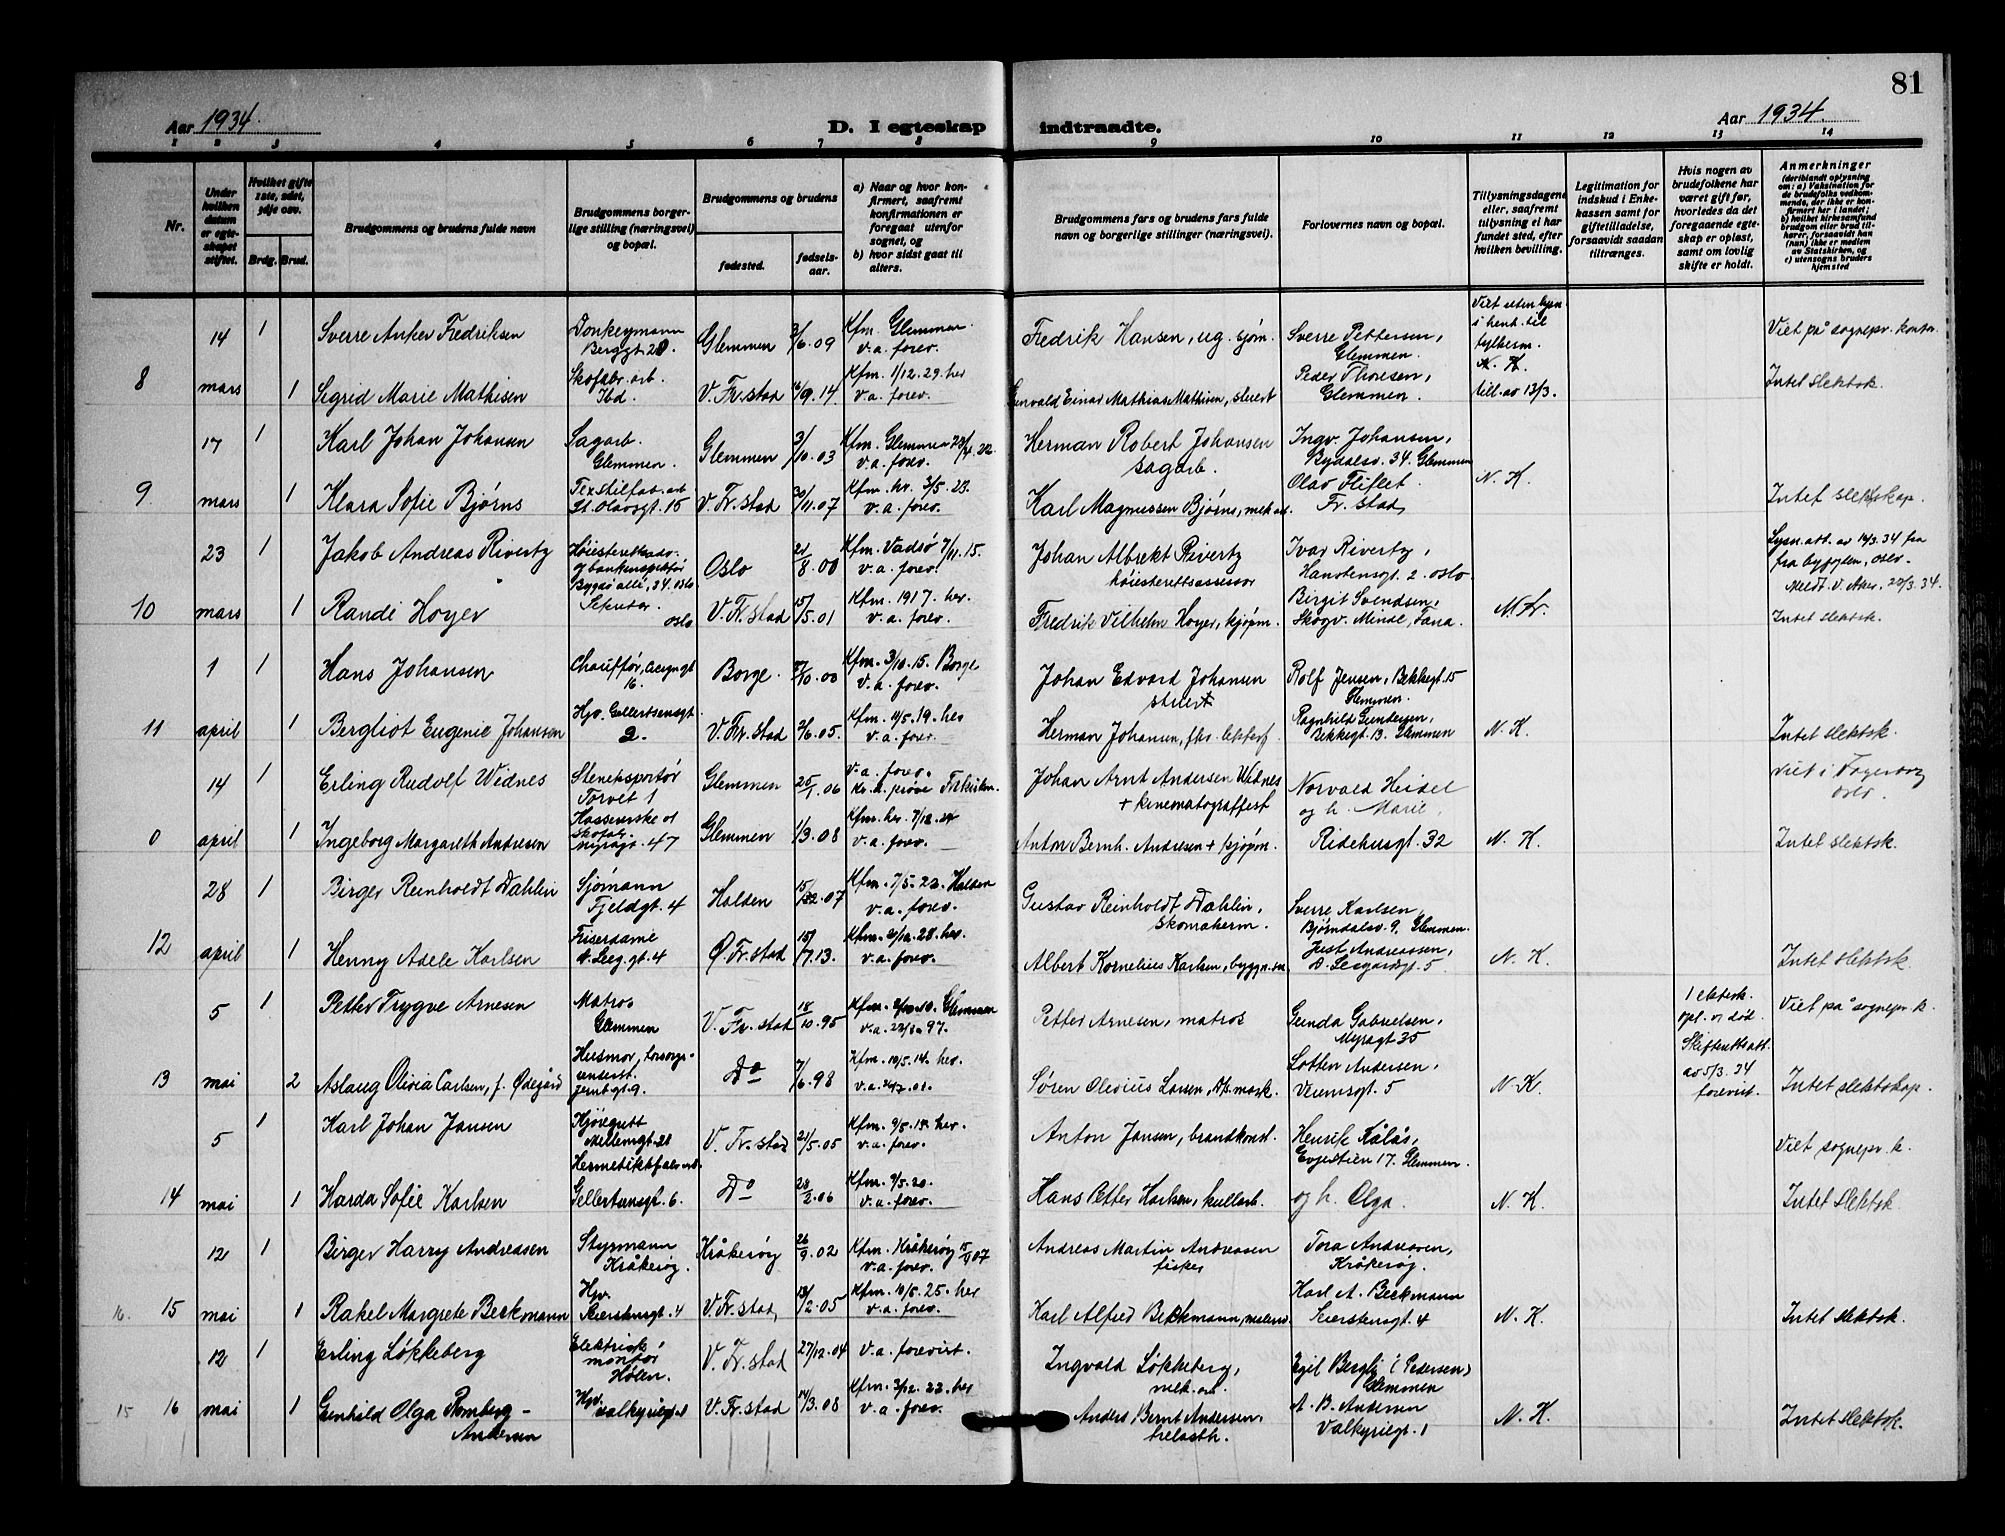 81
Aar 1934.
D. I egteskap indtraadte.
Aar 1934.
1 2 3 4 5 6 7 8 9 10 11 12 13 14
Nr.
Under hvilken datum er egteskapet stiftet.
Hvilket gifte 1ste, 2det, 3dje osv.
Brdg. Brud.
Brudgommens og brudens fulde navn
Brudgommens borgerlige stilling (næringsvei) og bopæl.
Brudgommens og brudens
fødested.
fødselsaar.
a) Naar og hvor konfirmert, saafremt konfirmationen er foregaat utenfor sognet, og
b) hvor sidst gaat til alters.
Brudgommens fars og brudens fars fulde navn og borgerlige stillinger (næringsvei).
Forlovernes navn og bopæl.
Tillysningsdagene eller, saafremt tillysning ei har fundet sted, efter hvilken bevilling.
Legitimation for indskud i Enkekassen samt for giftetilladelse, forsaavidt saadan tiltrænges.
Hvis nogen av brudefolkene har været gift før, hvorledes da det foregaaende egteskap er opløst, samt om lovlig skifte er holdt.
Anmerkninger
(deriblandt oplysning om: a) Vaksination for de brudefolks vedkommende, der ikke er konfirmert her i landet; b) hvilket kirkesamfund brudgom eller brud tilhører, forsaavidt han (hun) ikke er medlem av Statskirken, og c) utensogns bruders hjemsted
14 1 Sverre Anker Fredriksen Donkeymann Berggt. 28. Glemmen 3/6.09 Kfm. Glemmen v.a. forev. Fredrik Hansen, ug. sjøm. Sverre Pettersen, Glemmen. Viet på sognepr. kontor
8 mars 1 Sigrid Marie Mathisen Skofabr. arb. Ibd. V. Fr.stad 16/9.14 Kfm. 1/12.29. her v.a. forev. Einar Mathias Mathisen, Peder Thoresen, Glemmen. N. K. till. av 13/3. Intet slektsk.
17 1 Karl Johan Johansen Sagarb. Glemmen. Glemmen 3/10.03 Kfm. Glemmen v.a. forev. Herman Robert Johansen sagarb. Ingv. Johansen, Bydalsv. 34. Glemmen
9 mars 1 Klara Sofie Bjørns Textilfab. arb. St. Olavsgt. 15 V. Fr.stad 30/11.07 Kfm. hr. 3/5.23. v.a. forev. Karl Magnussen Bjørns, mek. arb. Olav Fliflet Fr. stad N. K. Intet slektskap.
23 1 Jakob Andreas Rivertz Høiesterettsadv. og bankinspektør Bygdø allé, 24. Oslo Oslo 21/8.00 Kfm. Vadsø 7/11.15. v.a. forev. Johan Albrekt Rivertz høiesterettsassessor Ivar Rivertz, Hanstensgt. 2. Oslo Lysn. att. av 16/3.34 fra fra byfogden, Oslo. Meldt. V. Aker, 20/3.34.
10 mars 1 Randi Høyer Sekretær. Oslo V. Fr. stad 15/5.01 Kfm. 1917. her. v.a. forev. Fredrik Vilhelm Høyer, kjøpm. Birgit Svendsen, Skogv. Minde, Fana. Intet slektsk.
1 1 Hans Johansen Chauffør, 16. Borge. 27/10.00 Kfm. 3/10.15. Borge v.a. forev. Johan Edvard Johansen Rolf Jensen, Bekkegt. 15 Glemmen.
11 april 1 Bergliot Eugenie Johansen Hjv. Gellertsensgt. 2. V. Fr. stad 2/6.05. Kfm. 11/5.19. her v.a. forev. Herman Johansen, Ragnhild Gundersen, Bekkegt. 13. Glemmen N. K. Intet slektsk.
14 1 Erling Rudolf Widnes Torvet 1 Glemmen 25/1.06 v.a. forev. Johan Arnt Andersen Widnes + kinematograffest Norvald Heidel og h. Marie. Viet i Fagerborg Oslo.
0 april 1 Ingeborg Margareth Andresen Kasserske ved skofabr. 47 Glemmen 1/3.08 Kfm. her. 7/12.24 v.a. forev. Anton Bernh. Andresen + kjøpm. Ridehusgt. 32 N. K. Intet slektsk.
28 1 Birger Reinholdt Dahlin Sjømann Fjeldgt. 4 Halden 15/12.07 Kfm. 7/5.22. Halden v.a. forev. Gustav Reinholdt Dahlin, Skomakerm. Sverre Karlsen, Bjørndalsv. 9. Glemmen.
12 april 1 Henny Adele Karlsen Friserdame Ø. Fr.stad 15/7.13. v.a. forev. Albert Kornelius Karlsen, Just Andreassen, 5 N. K. Intet slektsk.
5 1 Petter Trygve Arnesen Matros Glemmen V. Fr. stad 18/10.95 Kfm. Glemmen Petter Arnesen, matros Gunda Gabrielsen, Myragt 35 1 ektesk. opl. v. død. Skifterettsatt. av 5/3.34 forevist. Viet på sognepr. k.
13 mai 2 Aslaug Olivia Carlsen, f. Ødegård Husmor, forsorgsunderst. 9. Do 7/6.98 Kfm. 10/5.14. her. Søren Olevius Larsen, Lotten Andersen, Veumsgt. 5 N. K. Intet slektskap.
5 1 Karl Johan Jansen Kjøregutt Mellemgt. 21 V. Fr. stad 21/5.05 Kfm. her. v.a. forev. Anton Jansen, brandkonst. Henrik Kålås, Evjestien 17. Glemmen. Viet sognepr. k.
14 mai 1 Harda Sofie Karlsen Hermetikkfabr. arb. Gellertsensgt. 6. Do 28/2.06 Kfm. 9/5.20. v.a. forev. Hans Petter Karlsen, kullarb. og h. Olga. N. K. Intet slektsk.
12 1 Birger Harry Andreassen Styrmann Kråkerøy. Kråkerøy 26/9.02 Kfm. Kråkerøy v.a. forev. Andreas Martin Andreassen fisker Tora Andreassen, Kråkerøy.
16. 15 mai 1 Rakel Margrete Beckmann Hjv. Kierstensgt. 4 V. Fr. stad, 13/2.05 Kfm. 10/5.25. her v.a. forev. Karl Alfred Beckmann, Karl A. Beckmann Kierstensgt. 4 N. K. Intet slektsk.
12 1 Erling Løkkeberg Elektrisk montør Hølen. V. Fr. stad 27/12.04 v.a. forevist. Ingvald Løkkeberg, mek. arb. Egil Bergli (Pedersen) Glemmen
15 16 mai 1 Gunhild Olga Romberg-Andersen Hjv. Valkyriegt. 1 V. Fr. stad 14/3.08 Kfm. 3/12.22. her v.a. forev. Anders Bernt Andersen, trelasth. A. B. Andersen Valkyriegt. 1 N. K. Intet slektsk.